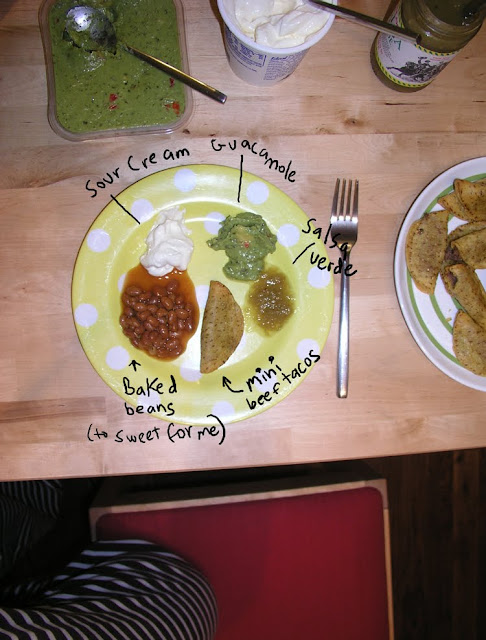 Sour Cream
Guacamole
Salsa
verde
Baked
beans
(to sweet for me)
mini
beef tacos